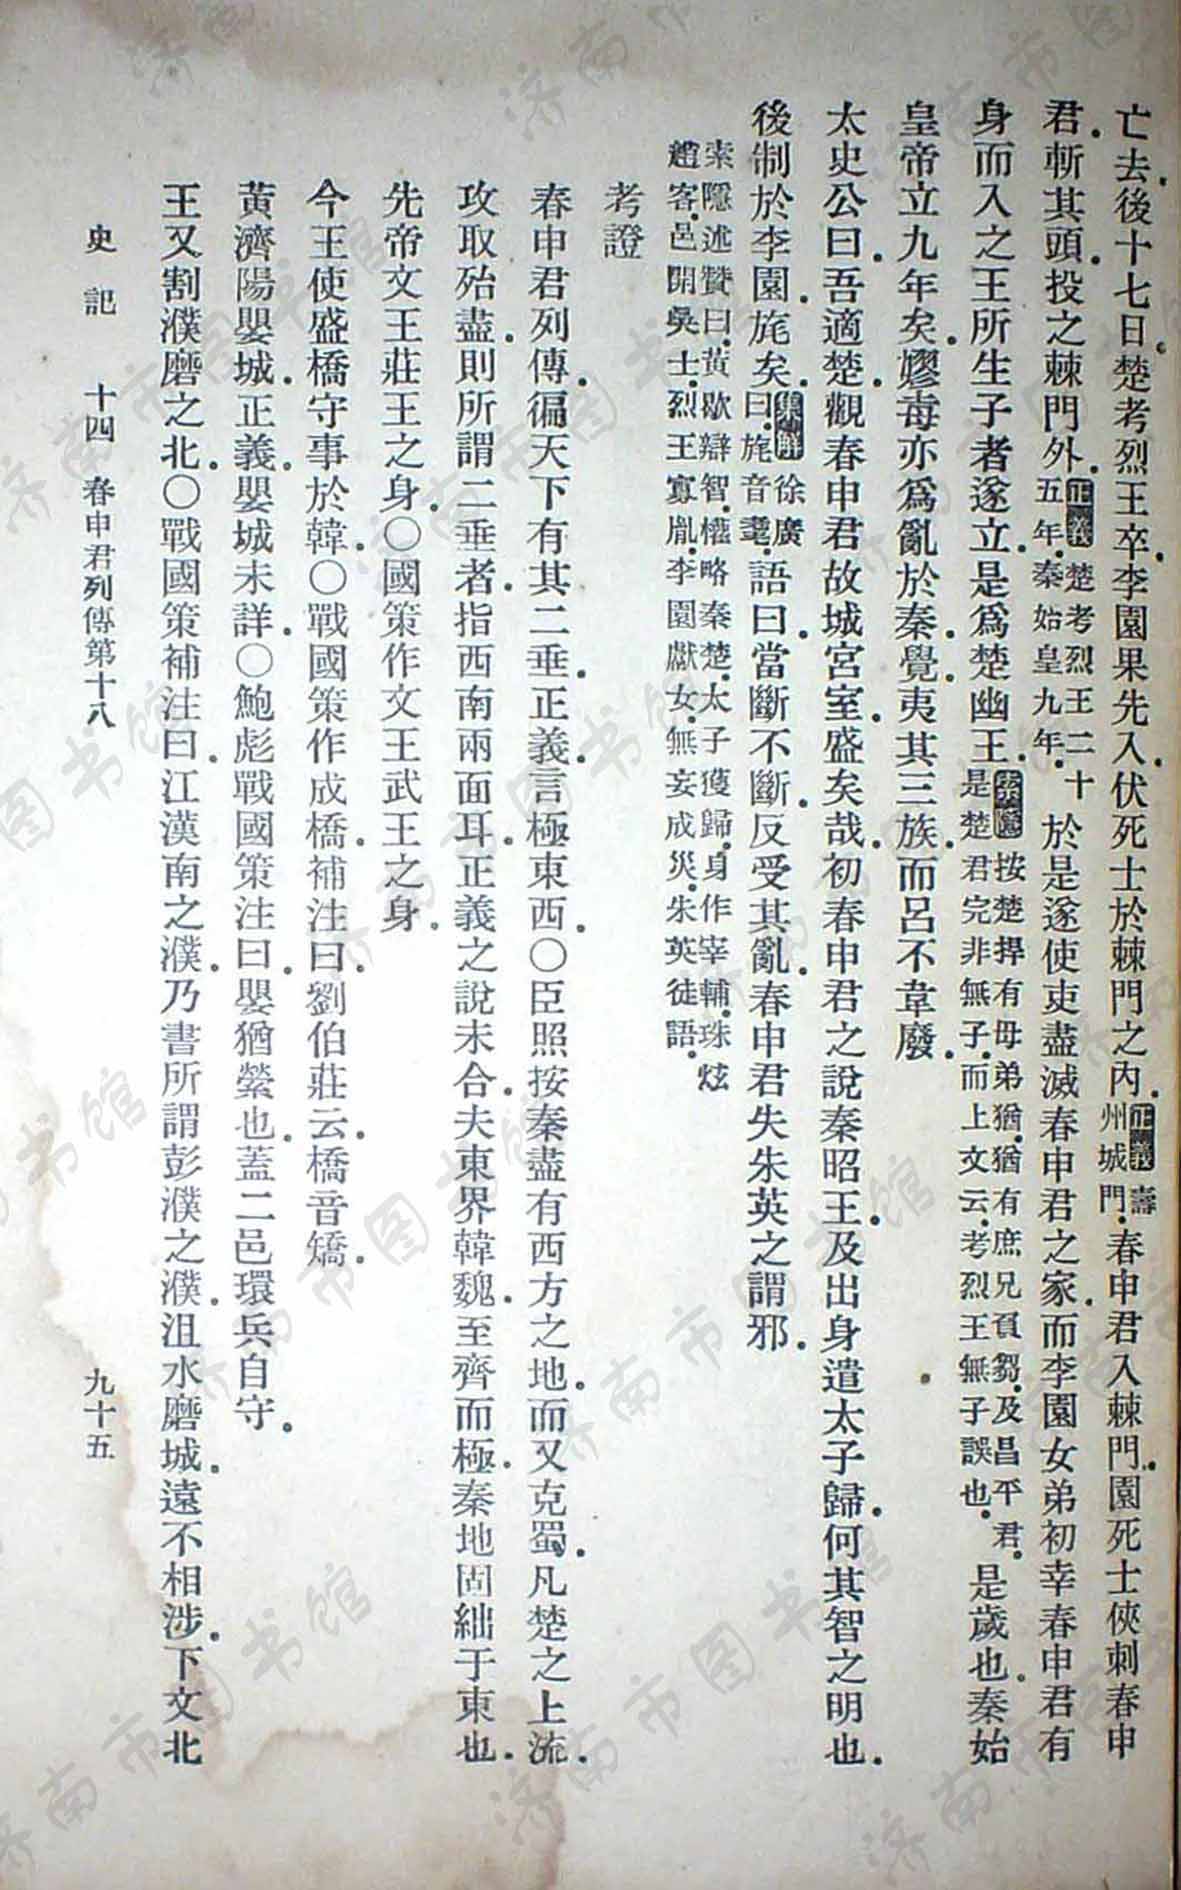 亡去.後十七日.楚考烈王卒.李園果先入.伏死士於棘門之內.正義壽州城門.春申君入棘門.園死士俠刺春申
君.斬其頭.投之棘門外.正義楚考烈王二十五年.秦始皇九年.於是遂使吏盡滅春申君之家.而李園女弟初幸春申君有
身而入之王所生子者遂立.是爲楚幽王.索隱按楚捍有母弟猶.猶有庶兄負芻.及昌平君.是楚君完非無子.而上文云.考烈王無子誤也.是歲也.秦始
皇帝立九年矣.嫪毐亦爲亂於秦.覺.夷其三族.而呂不韋廢.
太史公曰.吾適楚.觀春申君故城宮室.盛矣哉.初春申君之說秦昭王.及出身遣太子歸.何其智之明也.
後制於李園.旄矣.集解徐廣曰.旄音耄.語曰.當斷不斷.反受其亂.春申君失朱英之謂邪.
索隱述贊曰.黃歇辯智.權略秦楚.太子獲歸.身作宰輔.珠炫
趙客.邑開吳士.烈王寡胤.李園獻女.無妄成災.朱英徒語.
考證
春申君列傳.徧天下有其二垂.正義.言極東西.〇臣照按秦盡有西方之地.而又克蜀.凡楚之上流.
攻取殆盡.則所謂二垂者.指西南兩面耳.正義之說未合.夫東界韓魏.至齊而極.秦地固絀于東也.
先帝文王莊王之身.〇國策作文王武王之身.
今王使盛橋守事於韓.〇戰國策作成橋.補注曰.劉伯莊云.橋音矯.
黃濟陽嬰城.正義.嬰城未詳.〇鮑彪戰國策注曰.嬰猶縈也.蓋二邑環兵自守.
王又割濮磨之北.〇戰國策補注曰.江漢南之濮.乃書所謂彭濮之濮.沮水磨城.遠不相涉.下文北
史記 十四 春申君列傳第十八 九十五
济南市图书馆